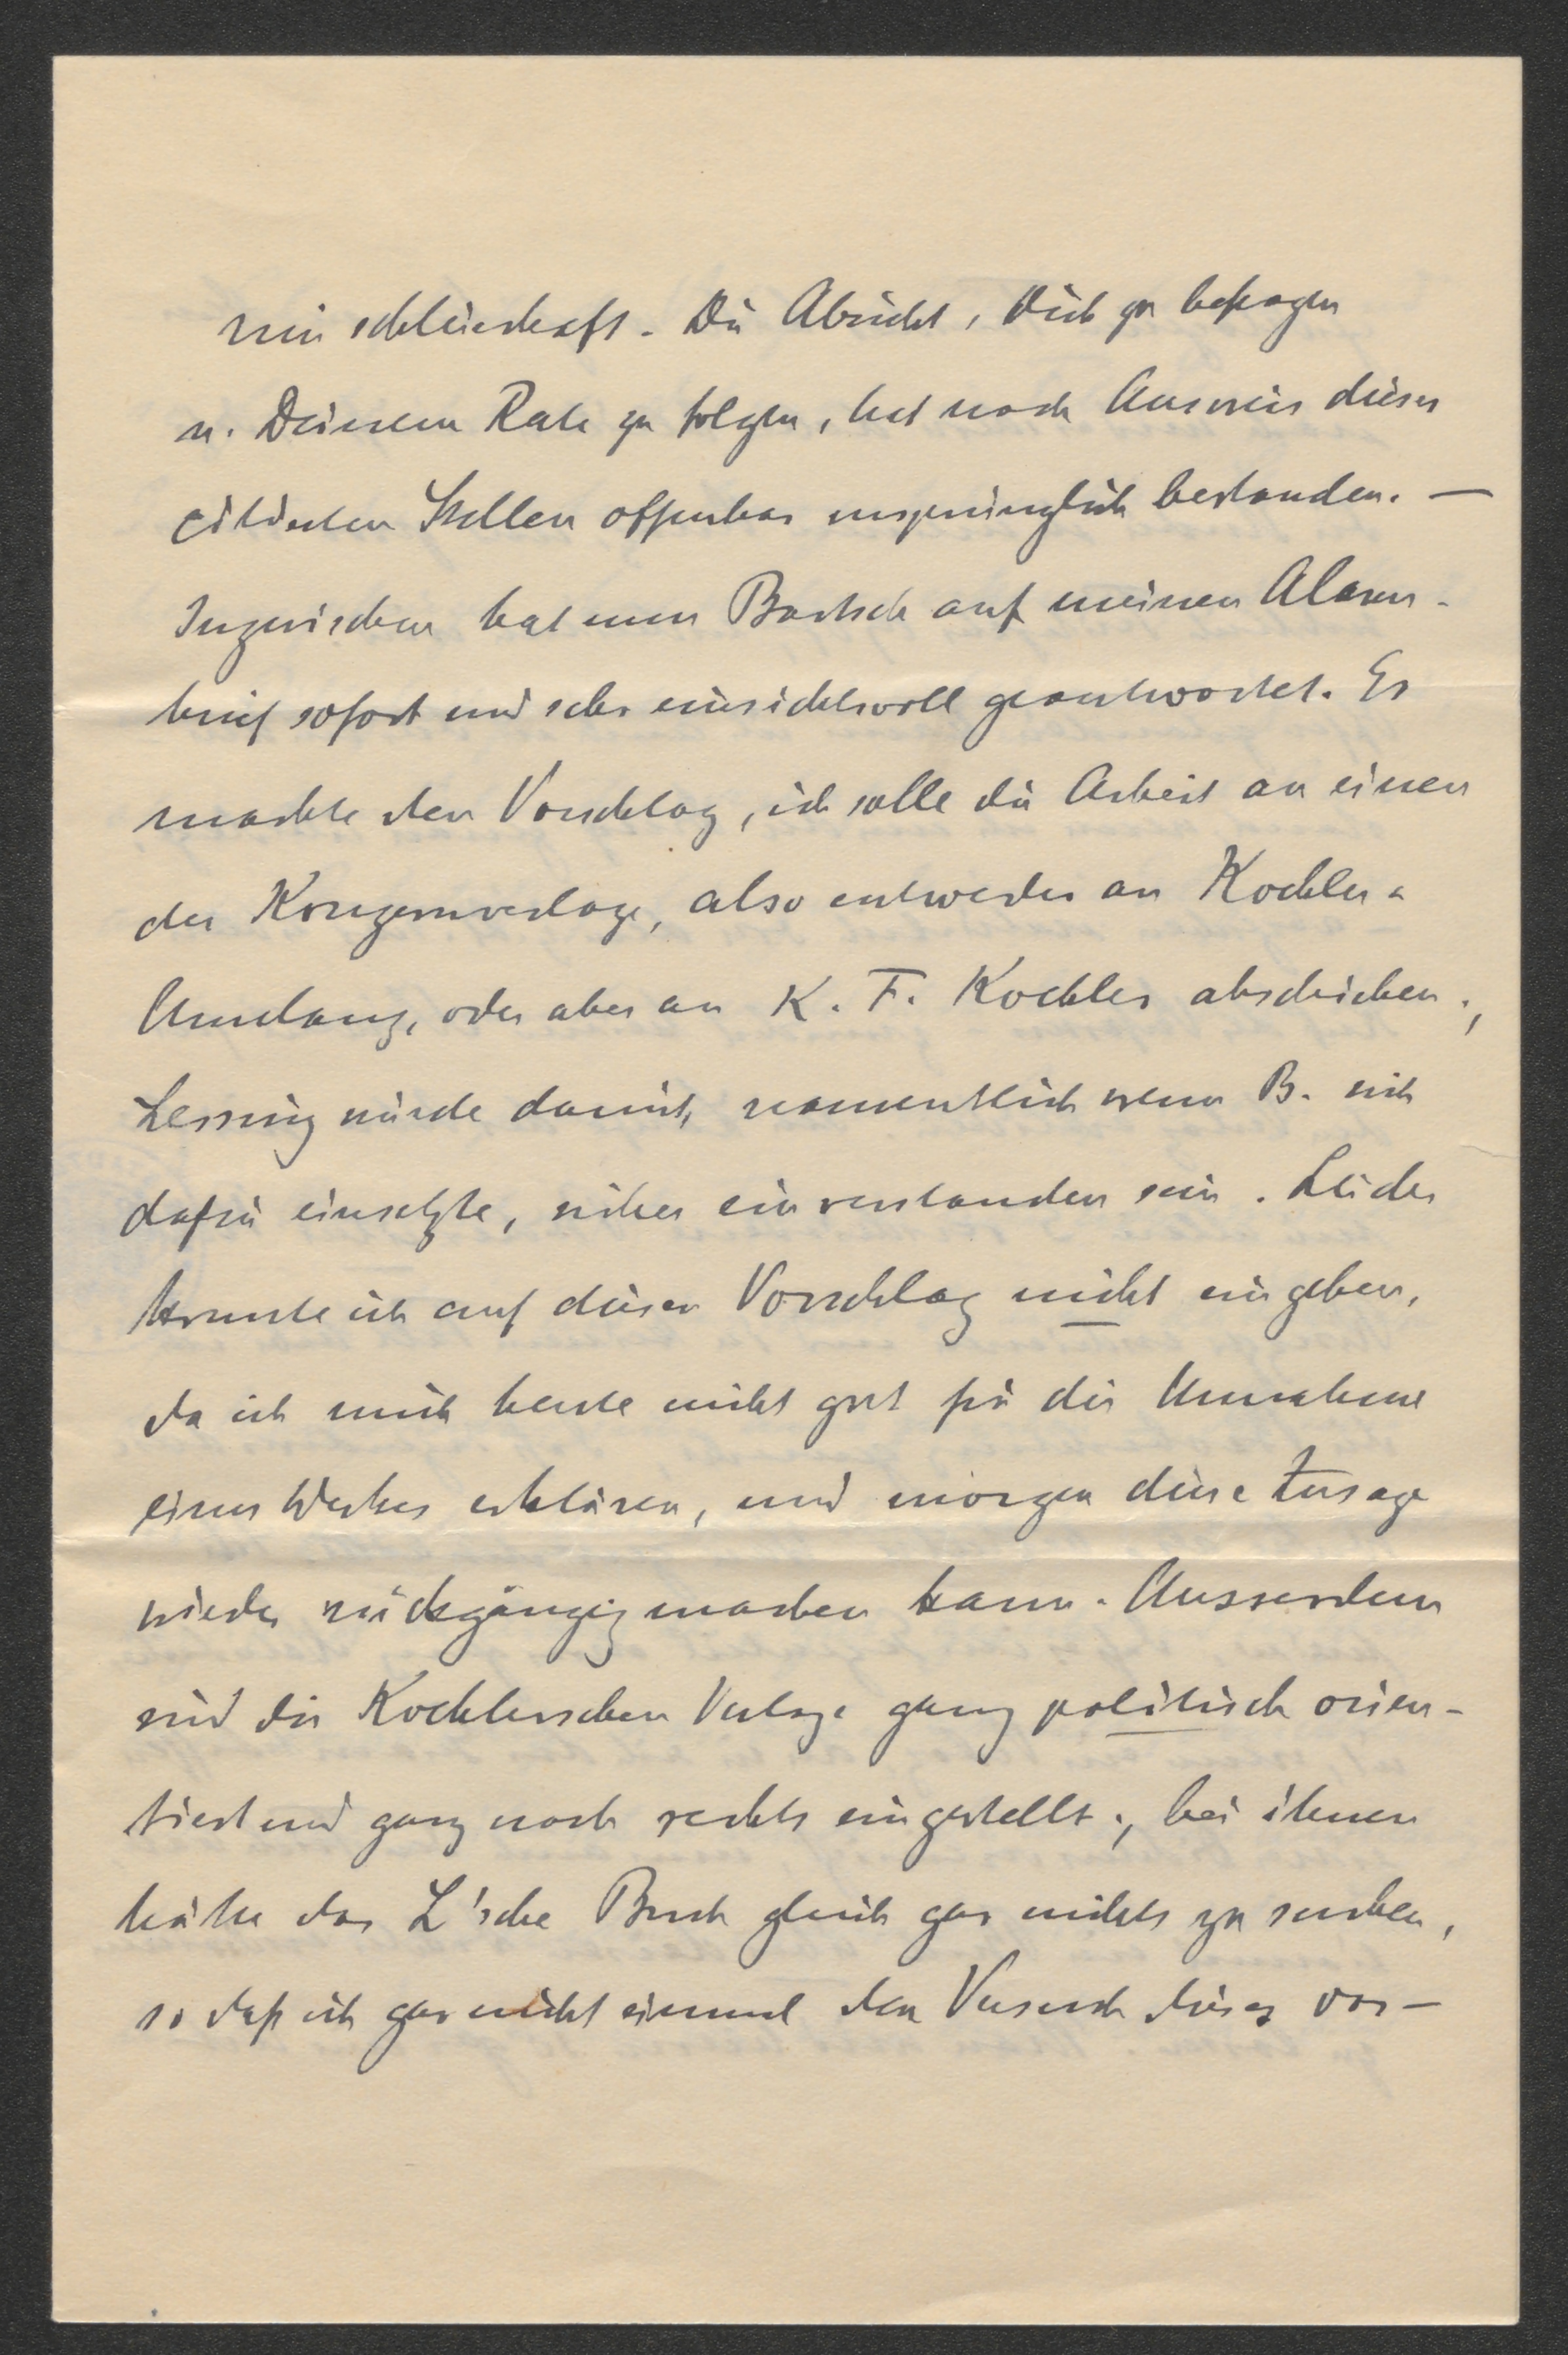 mir schleierhaft. Die Absicht, Dich zu befragen
u. Deinem Rate zu folgen, hat nach Ausweis dieser
citierten Stellen offenbar ursprünglich bestanden. —
Inzwischen hat nun Bartsch auf meinen Alarm-
brief sofort und sehr einsichtsvoll geantwortet. Er
machte den Vorschlag, ich solle die Arbeit an einen
der Konzernverlage, also entweder an Koehler u
Amelang, oder aber an K. F. Koehler abschieben;
Lessing würde damit, namentlich wenn B. sich
dafür einsetzte, sicher einverstanden sein. Leider
konnte ich auf diesen Vorschlag nicht eingehen,
da ich mich heute nicht gut für die Annahme
eines Werkes erklären, und morgen diese Zusage
wieder rückgängig machen kann. Ausserdem
sind die Koehlerschen Verlage ganz politisch orien-
tiert und ganz nach rechts eingestellt; bei ihnen
hätte das L'sche Buch gleich gar nichts zu suchen,
so daß ich gar nicht einmal den Versuch dieses vor-